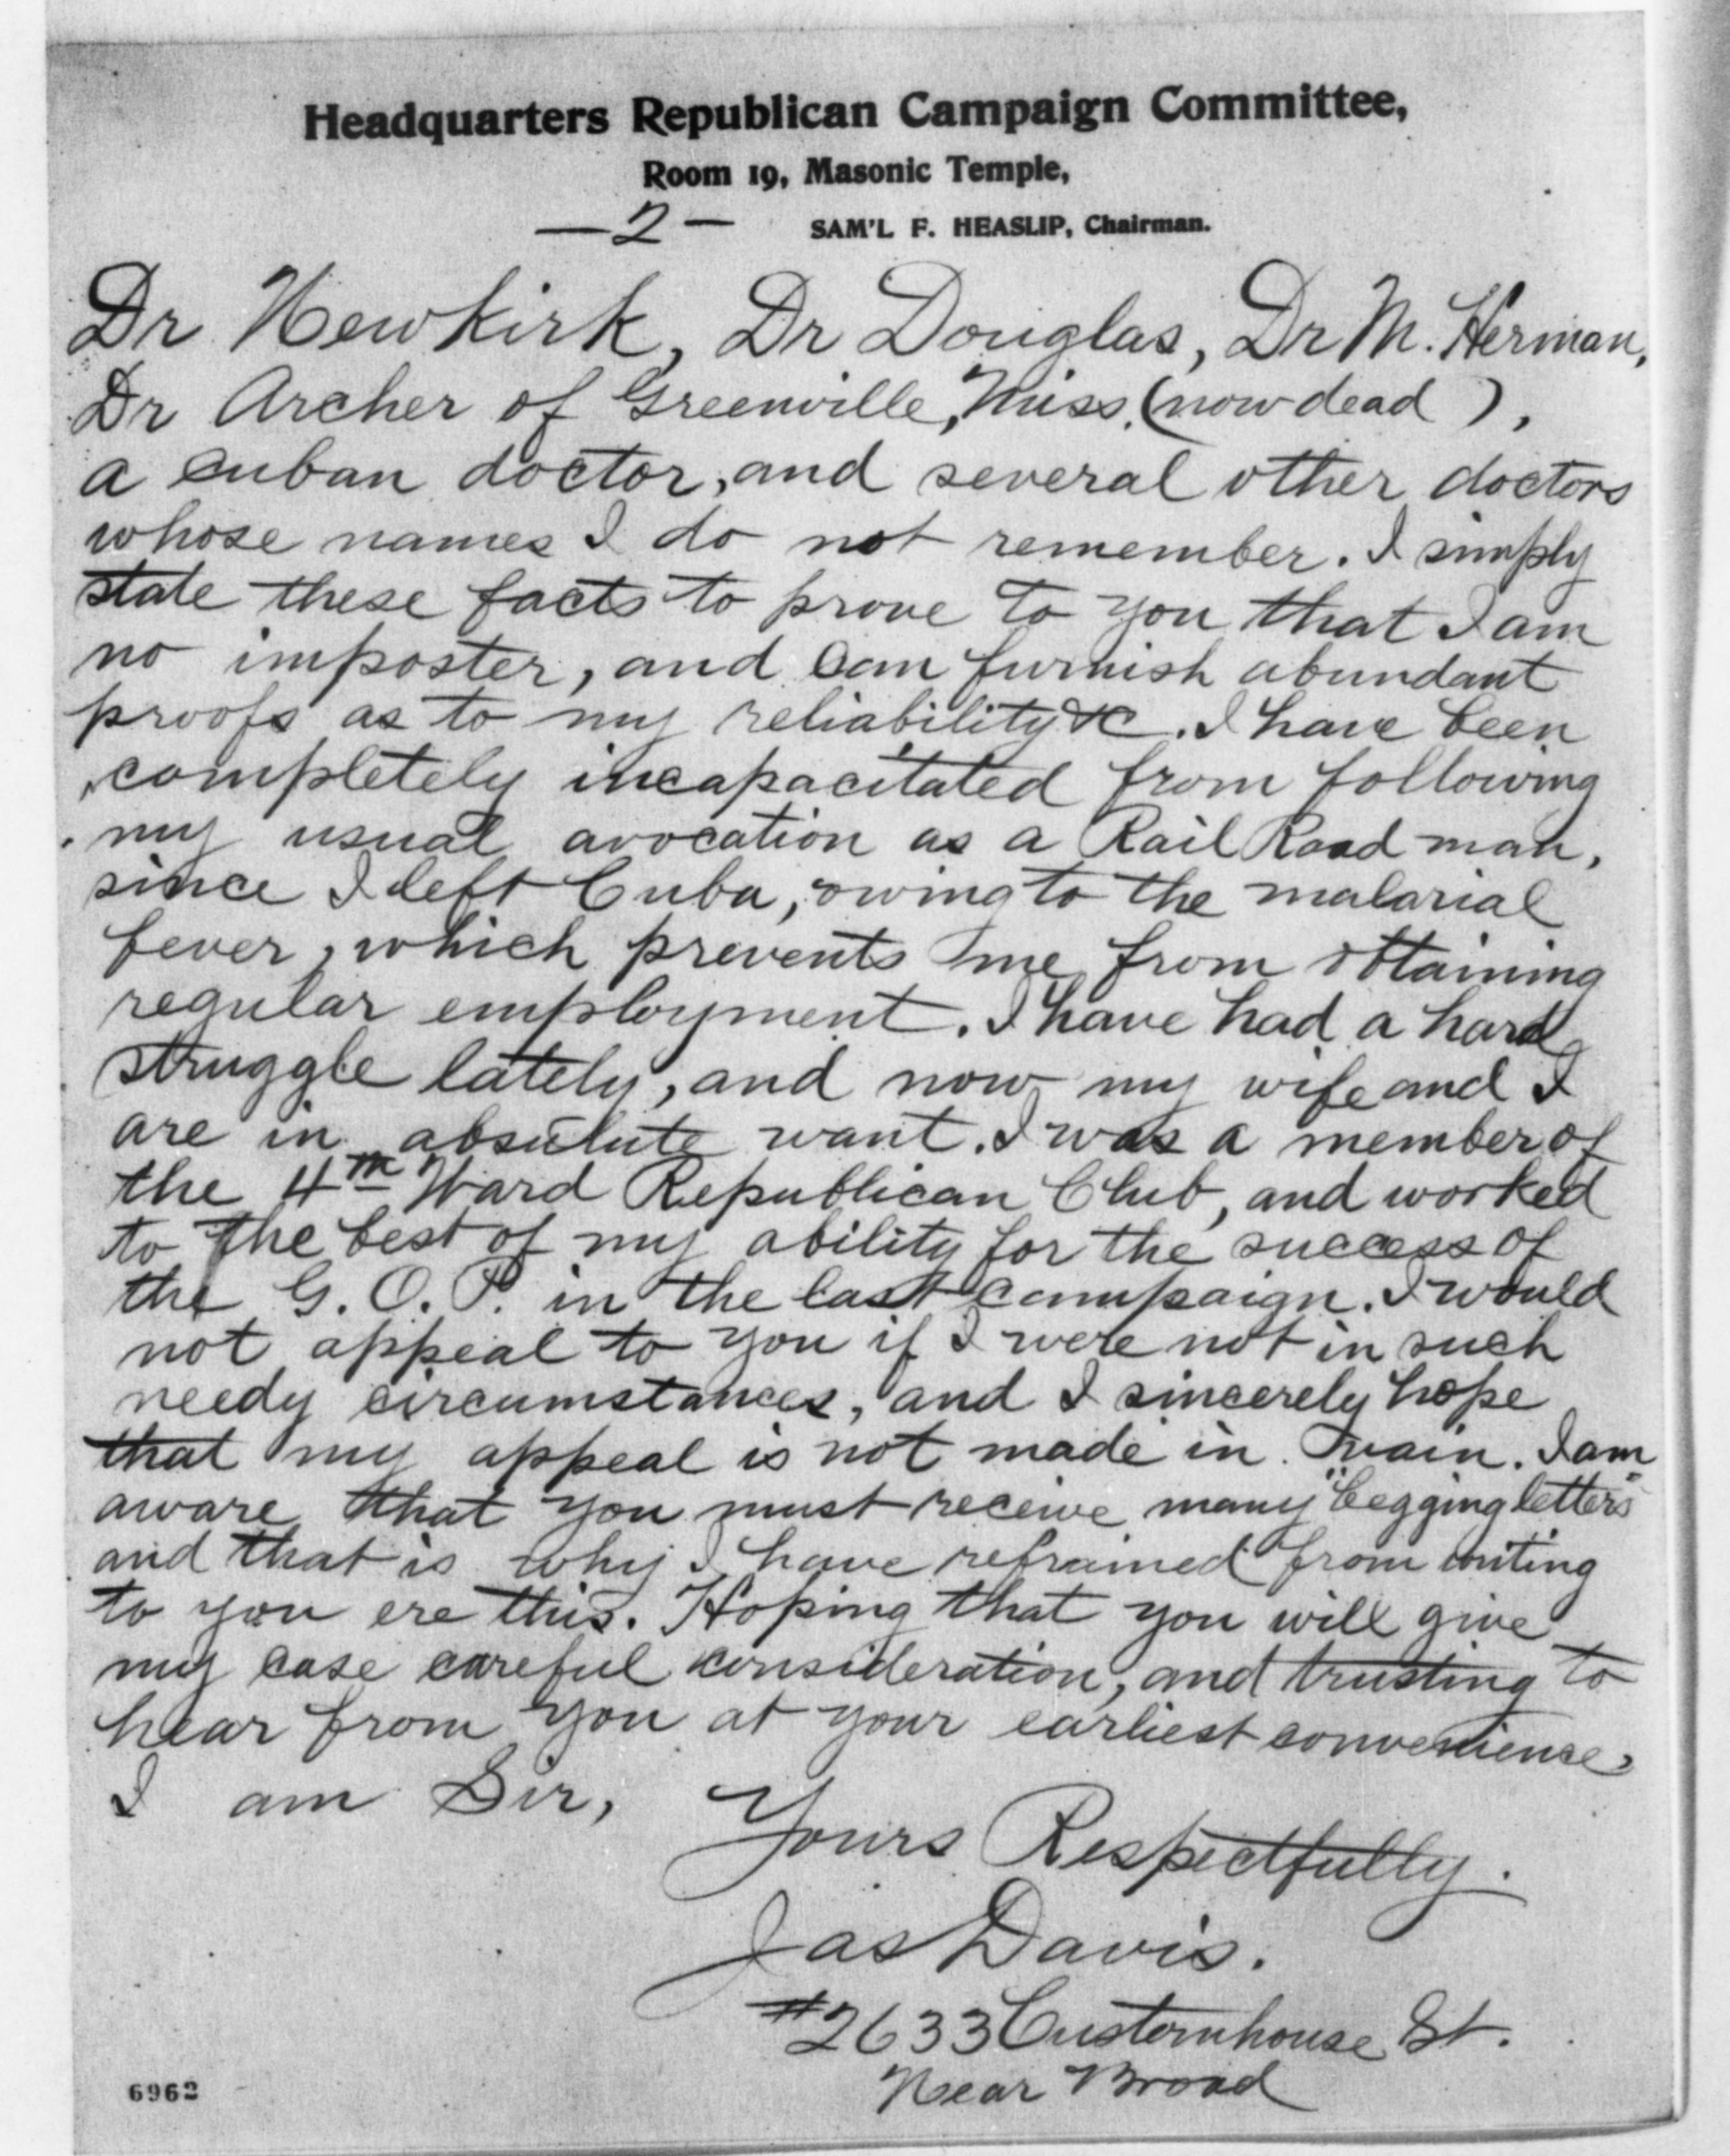 Headquarters Republican Campaign Committee,
Room 19, Masonic Temple,
—2— SAM'L F. HEASLIP, Chairman.
Dr Newkirk, Dr Douglas, Dr M. Herman,
Dr Archer of Greenville, Miss. (now dead),
a cuban doctor, and several other doctors
whose names I do not remember. I simply
state these facts to prove to you that I am
no imposter, and can furnish abundant
proofs as to my reliability &c. I have been
completely incapacitated from following
my usual avocation as a Rail Road man,
since I left Cuba, owing to the malarial
fever, which prevents me from obtaining
regular employment. I have had a hard
struggle lately, and now my wife and I
are in absolute want. I was a member of
the 4th Ward Republican Club, and worked
to the best of my ability for the success of
the G. O. P. in the last campaign. I would
not appeal to you if I were not in such
needy circumstances, and I sincerely hope
that my appeal is not made in vain. I am
aware that you must receive many "begging letters"
and that is why I have refrained from writing
to you ere this. Hoping that you will give
my case careful consideration, and trusting to
hear from you at your earliest convenience,
I am Sir,
Yours Respectfully.
Jas Davis.
#2633 Customhouse St.
Near Broad
6962